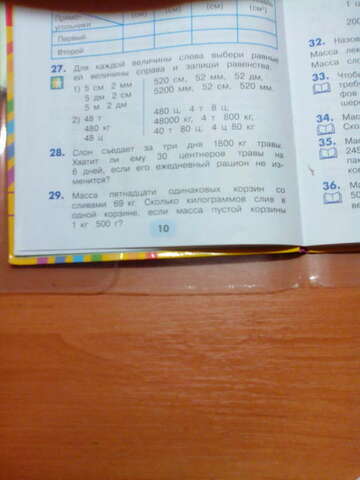 Прямо-
угольники
(см)
(см)
(см²)
Первый
Второй
27. Для каждой величины слева выбери равные
ей величины справа и запиши равенства.
1) 5 см 2 мм
5 дм 2 см
5 м 2 дм
520 см, 52 мм, 52 дм,
5200 мм, 52 см, 520 мм.
2) 48 т
480 кг
48 ц
480 ц, 4 т 8 ц,
48000 кг, 4 т 800 кг,
40 т 80 ц, 4 ц 80 кг
28. Слон съедает за три дня 1800 кг травы.
Хватит ли ему 30 центнеров травы на
6 дней, если его ежедневный рацион не из-
менится?
29. Масса пятнадцати одинаковых корзин со
сливами 69 кг. Сколько килограммов слив в
одной корзине, если масса пустой корзины
1 кг 500 г?
10
32. Назов
Масса ле
Масса сло
33. Чтоб
требу
фов
шёрс
34. Мас
Ска
35. Мас
245
па
36. Ма
50
ве